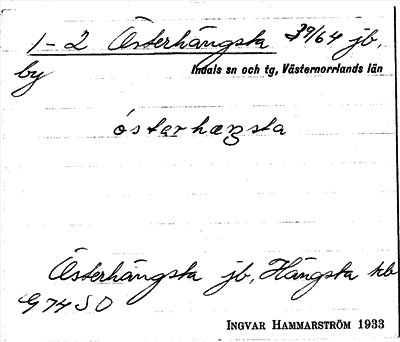 1-2 Österhängsta 39/64 jb,
by
Indals sn och tg, Västernorrlands län
östarhæŋsta
Österhängsta jb, Hängsta kb
G 74 SO
INGVAR HAMMARSTRÖM 1933